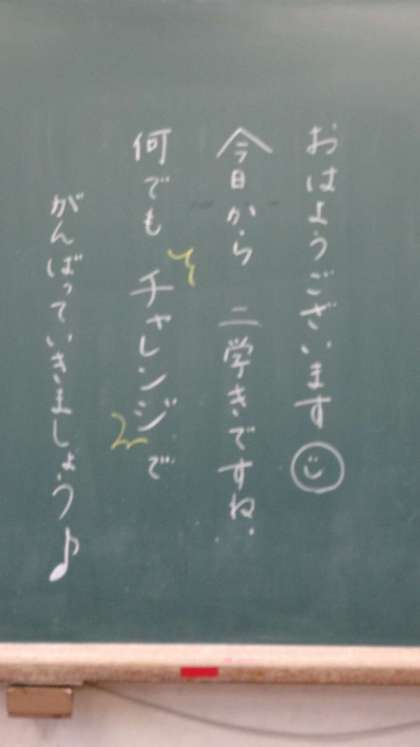 おはようございます
今日から 二学きですね.
何でも チャレンジで
がんばっていきましょう♪